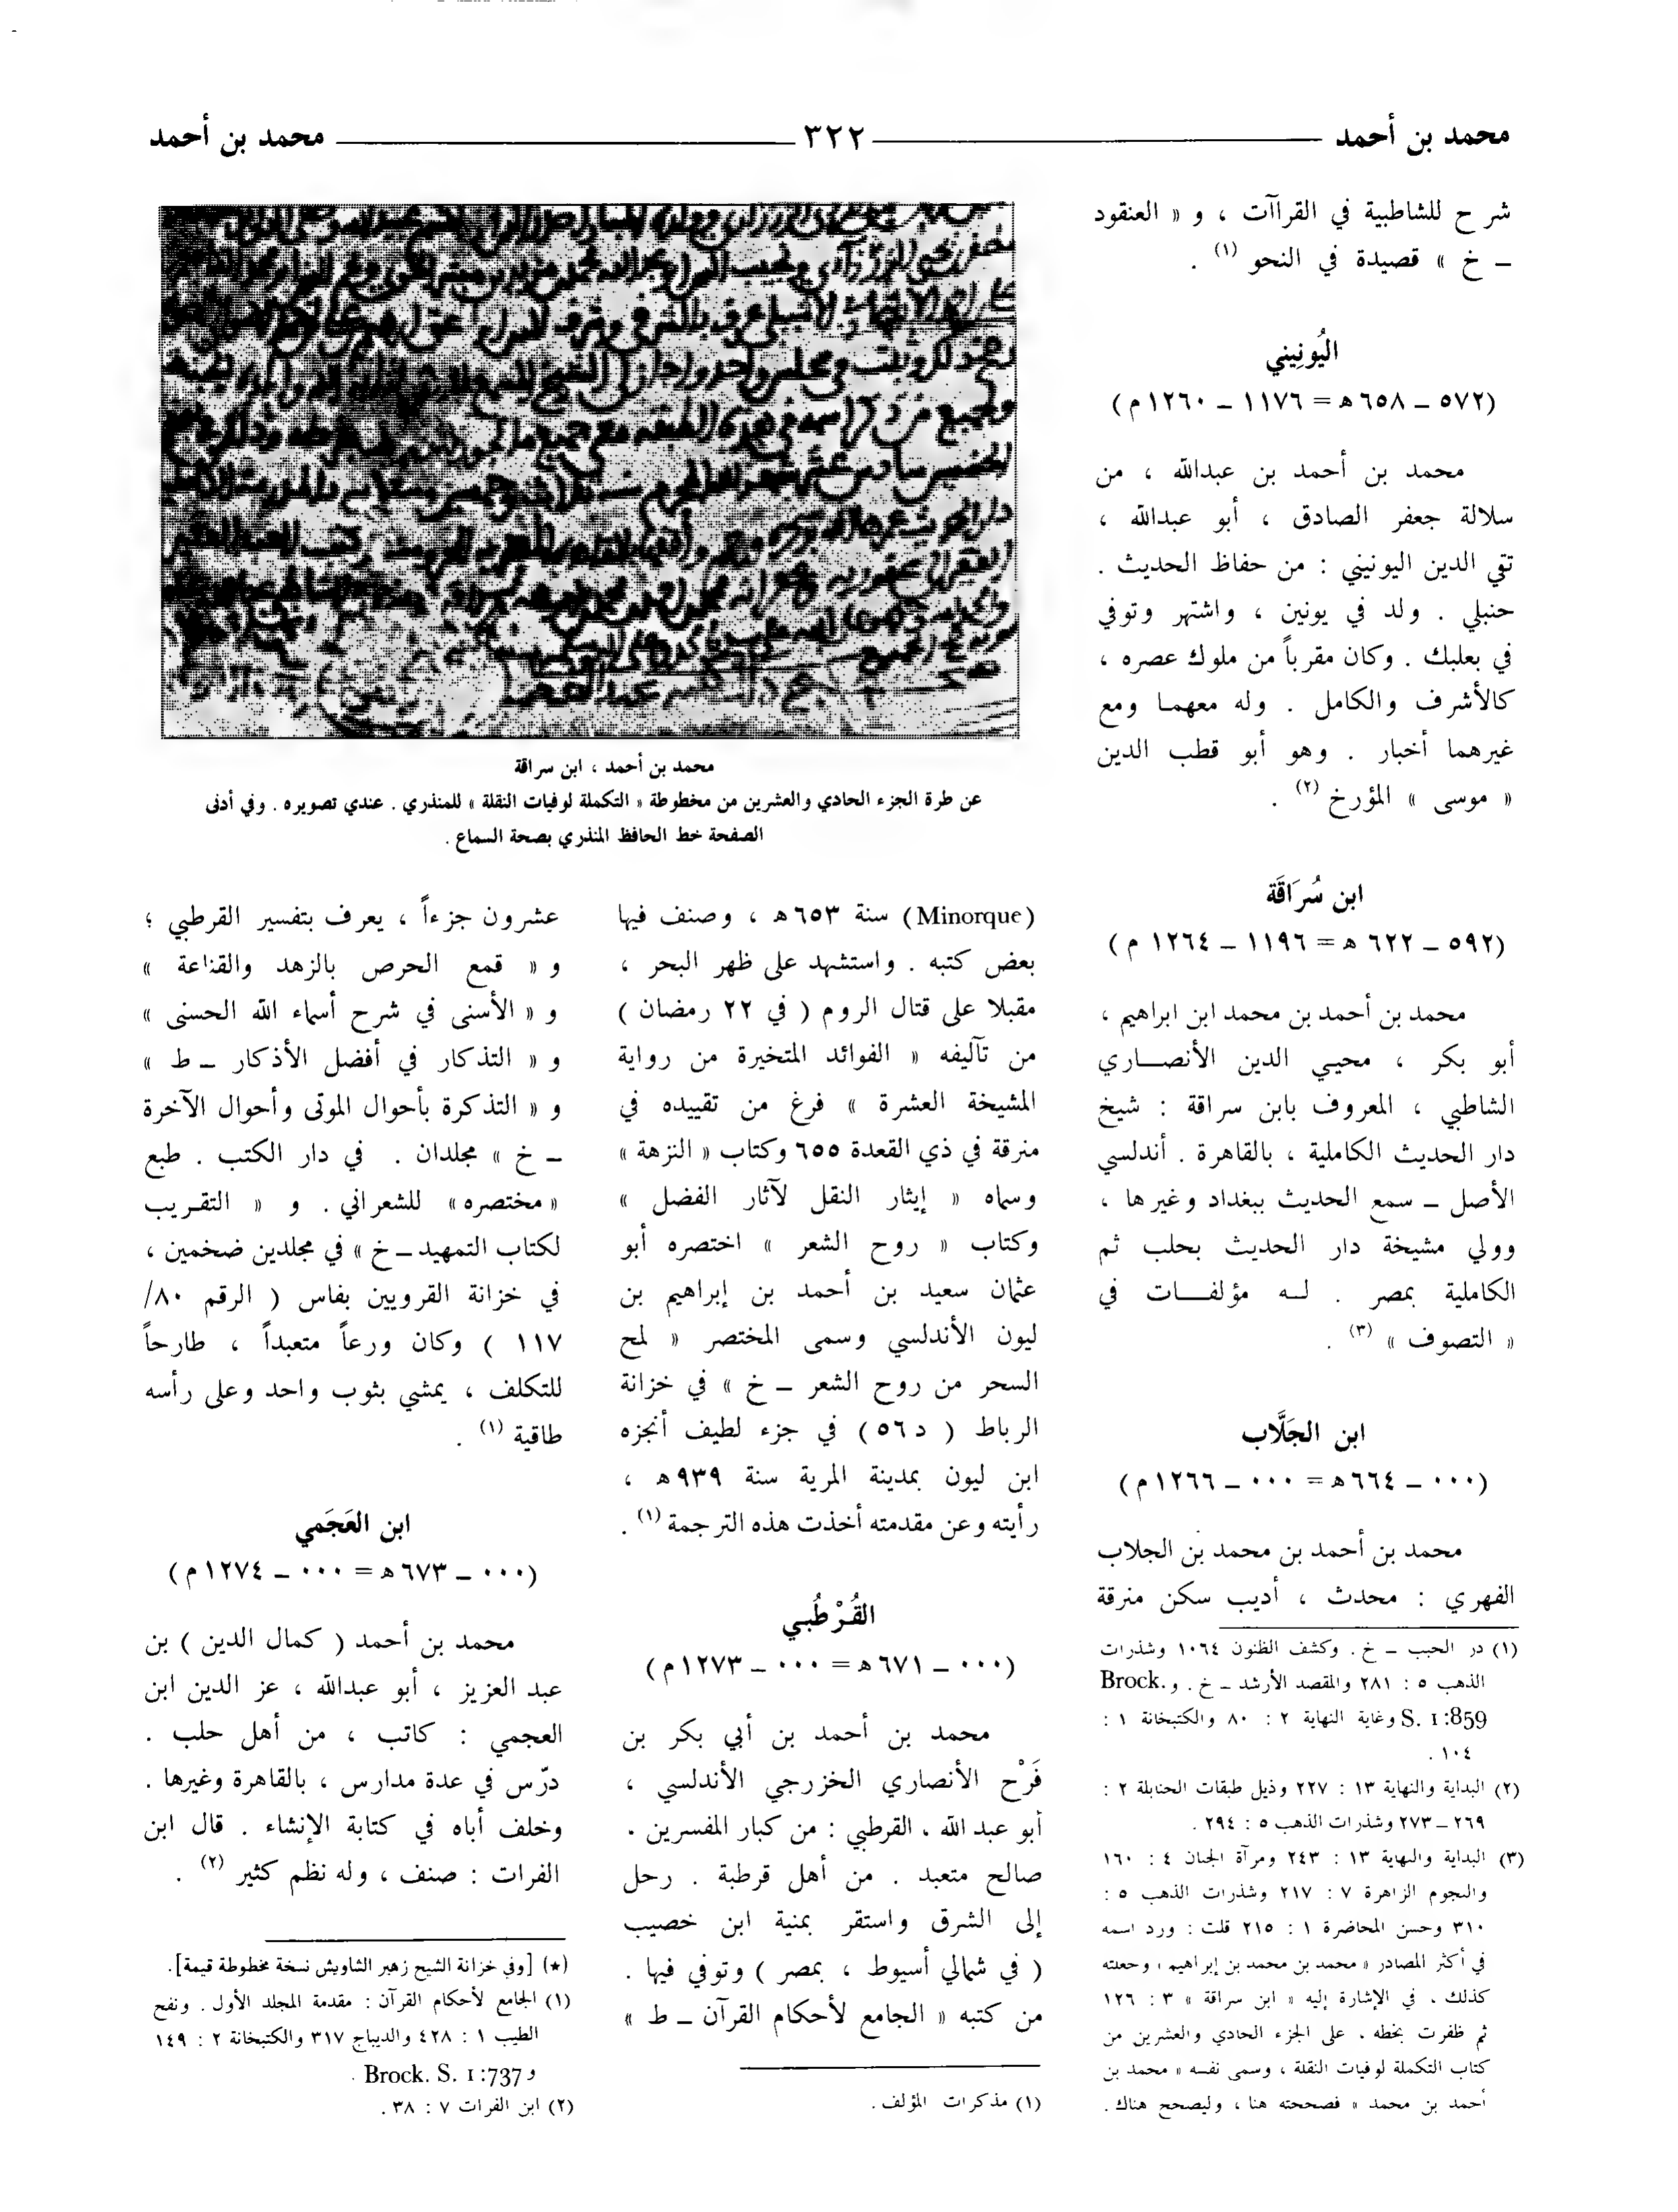 محمد بن أحمد ٣٢٢ محمد بن أحمد
شرح للشاطبية في القراآت ، و « العنقود
ـ خ » قصيدة في النحو (١) .
اليُونِيني
(٥٧٢ ـ ٦٥٨ ه = ١١٧٦ ـ ١٢٦٠ م )
محمد بن أحمد بن عبدالله ، من
سلالة جعفر الصادق ، أبو عبدالله ،
تقي الدين اليونيني : من حفاظ الحديث .
حنبلي . ولد في يونين ، واشتهر وتوفي
في بعلبك . وكان مقرباً من ملوك عصره ،
كالأشرف والكامل . وله معهما ومع
غيرهما أخبار . وهو أبو قطب الدين
« موسى » المؤرخ (٢) .
ابن سُرَاقَة
(٥٩٢ ـ ٦٢٢ ه = ١١٩٦ ـ ١٢٦٤ م )
محمد بن أحمد بن محمد ابن ابراهيم ،
أبو بكر ، محيي الدين الأنصاري
الشاطبي ، المعروف بابن سراقة : شيخ
دار الحديث الكاملية ، بالقاهرة . أندلسي
الأصل ـ سمع الحديث ببغداد وغيرها ،
وولي مشيخة دار الحديث بحلب ثم
الكاملية بمصر . له مؤلفات في
« التصوف » (٣) .
ابن الجَلَّاب
(٠٠٠ ـ ٦٦٤ ه = ٠٠٠ ـ ١٢٦٦ م )
محمد بن أحمد بن محمد بن الجلاب
الفهري : محدث ، أديب سكن منرقة
(١) در الحبب ـ خ . وكشف الظنون ١٠٦٤ وشذرات
الذهب ٥ : ٢٨١ والمقصد الأرشد ـ خ . و Brock.
S. 1:859 وغاية النهاية ٢ : ٨٠ والكتبخانة ١ :
١٠٤ .
(٢) البداية والنهاية ١٣ : ٢٢٧ وذيل طبقات الحنابلة ٢ :
٢٦٩ ـ ٢٧٣ وشذرات الذهب ٥ : ٢٩٤ .
(٣) البداية والنهاية ١٣ : ٢٤٣ ومرآة الجنان ٤ : ١٦٠
والنجوم الزاهرة ٧ : ٢١٧ وشذرات الذهب ٥ :
٣١٠ وحسن المحاضرة ١ : ٢١٥ قلت : ورد اسمه
في أكثر المصادر « محمد بن محمد بن إبراهيم ، وجعلته
كذلك ، في الإشارة إليه « ابن سراقة » ٣ : ١٢٦
ثم ظفرت بخطه ، على الجزء الحادي والعشرين من
كتاب التكملة لوفيات النقلة ، وسمى نفسه « محمد بن
أحمد بن محمد » فصححته هنا ، وليصحح هناك .
محمد بن أحمد ، ابن سراقة
عن طرة الجزء الحادي والعشرين من مخطوطة « التكملة لوفيات النقلة » للمنذري . عندي تصويره . وفي أدنى
الصفحة خط الحافظ المنذري بصحة السماع .
(Minorque) سنة ٦٥٣ ه ، وصنف فيها
بعض كتبه . واستشهد على ظهر البحر ،
مقبلا على قتال الروم ( في ٢٢ رمضان )
من تآليفه « الفوائد المتخيرة من رواية
المشيخة العشرة » فرغ من تقييده في
منرقة في ذي القعدة ٦٥٥ وكتاب « النزهة »
وسماه « إيثار النقل لآثار الفضل »
وكتاب « روح الشعر » اختصره أبو
عثمان سعيد بن أحمد بن إبراهيم بن
ليون الأندلسي وسمى المختصر « لمح
السحر من روح الشعر ـ خ » في خزانة
الرباط ( د ٥٦ ) في جزء لطيف أنجزه
ابن ليون بمدينة المرية سنة ٩٣٩ ه ،
رأيته وعن مقدمته أخذت هذه الترجمة (١) .
القُرْطُبي
(٠٠٠ ـ ٦٧١ ه = ٠٠٠ ـ ١٢٧٣ م )
محمد بن أحمد بن أبي بكر بن
فَرْح الأنصاري الخزرجي الأندلسي ،
أبو عبد الله ، القرطبي : من كبار المفسرين .
صالح متعبد . من أهل قرطبة . رحل
إلى الشرق واستقر بمنية ابن خصيب
( في شمالي أسيوط ، بمصر ) وتوفي فيها .
من كتبه « الجامع لأحكام القرآن ـ ط »
(١) مذكرات المؤلف .
عشرون جزءاً ، يعرف بتفسير القرطبي ؛
و « قمع الحرص بالزهد والقناعة »
و « الأسنى في شرح أسماء الله الحسنى »
و « التذكار في أفضل الأذكار ـ ط »
و « التذكرة بأحوال الموتى وأحوال الآخرة
ـ خ » مجلدان . في دار الكتب . طبع
« مختصره » للشعراني . و « التقريب
لكتاب التمهيد ـ خ » في مجلدين ضخمين ،
في خزانة القرويين بفاس ( الرقم ٨٠/
١١٧ ) وكان ورعاً متعبداً ، طارحاً
للتكلف ، يمشي بثوب واحد وعلى رأسه
طاقية (١) .
ابن العَجَمي
(٠٠٠ ـ ٦٧٣ ه = ٠٠٠ ـ ١٢٧٤ م )
محمد بن أحمد ( كمال الدين ) بن
عبد العزيز ، أبو عبدالله ، عز الدين ابن
العجمي : كاتب ، من أهل حلب .
درّس في عدة مدارس ، بالقاهرة وغيرها .
وخلف أباه في كتابة الإنشاء . قال ابن
الفرات : صنف ، وله نظم كثير (٢) .
(*) [وفي خزانة الشيخ زهير الشاويش نسخة مخطوطة قيمة].
(١) الجامع لأحكام القرآن : مقدمة المجلد الأول . ونفح
الطيب ١ : ٤٢٨ والديباج ٣١٧ والكتبخانة ٢ : ١٤٩
و Brock. S. 1:737 .
(٢) ابن الفرات ٧ : ٣٨ .